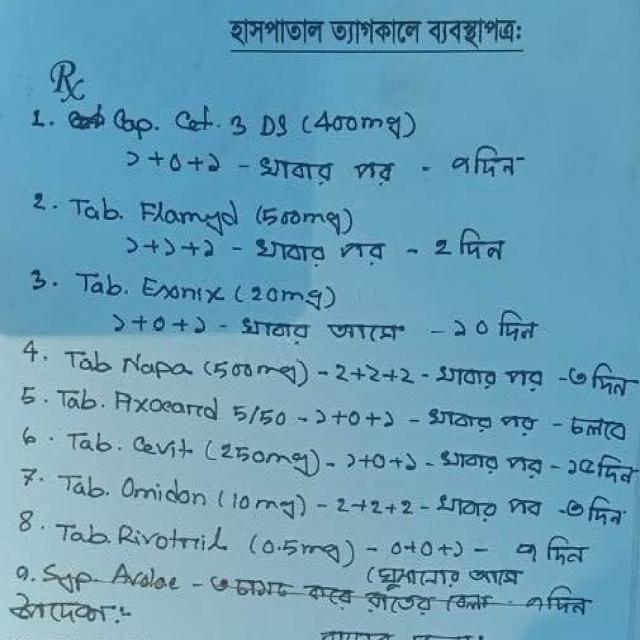 হাসপাতাল ত্যাগকালে ব্যবস্থাপত্র:
Rx
1. Cap. Cef. 3 DS (400mg)
১+০+১ - খাবার পর - ৭দিন
2. Tab. Flamyd (500mg)
১+১+১ - খাবার পর - 2 দিন
3. Tab. Exonix (20mg)
১+০+১ - খাবার আগে - ১০ দিন
4. Tab Napa (500mg) - 2+2+2 - খাবার পর - ৩ দিন
5. Tab. Axocard 5/50 - ১+০+১ - খাবার পর - চলবে
6. Tab. Cevit (250mg) - ১+০+১ - খাবার পর - ১৫দিন
7. Tab. Omidon (10mg) - 2+2+2 - খাবার পর - ৩ দিন
8. Tab. Rivotril (0.5mg) - 0+0+১ - ৭ দিন
(ঘুমানোর আগে
৯. Syp. - ৩ চামচ করে রাতের বেলা - ৭দিন